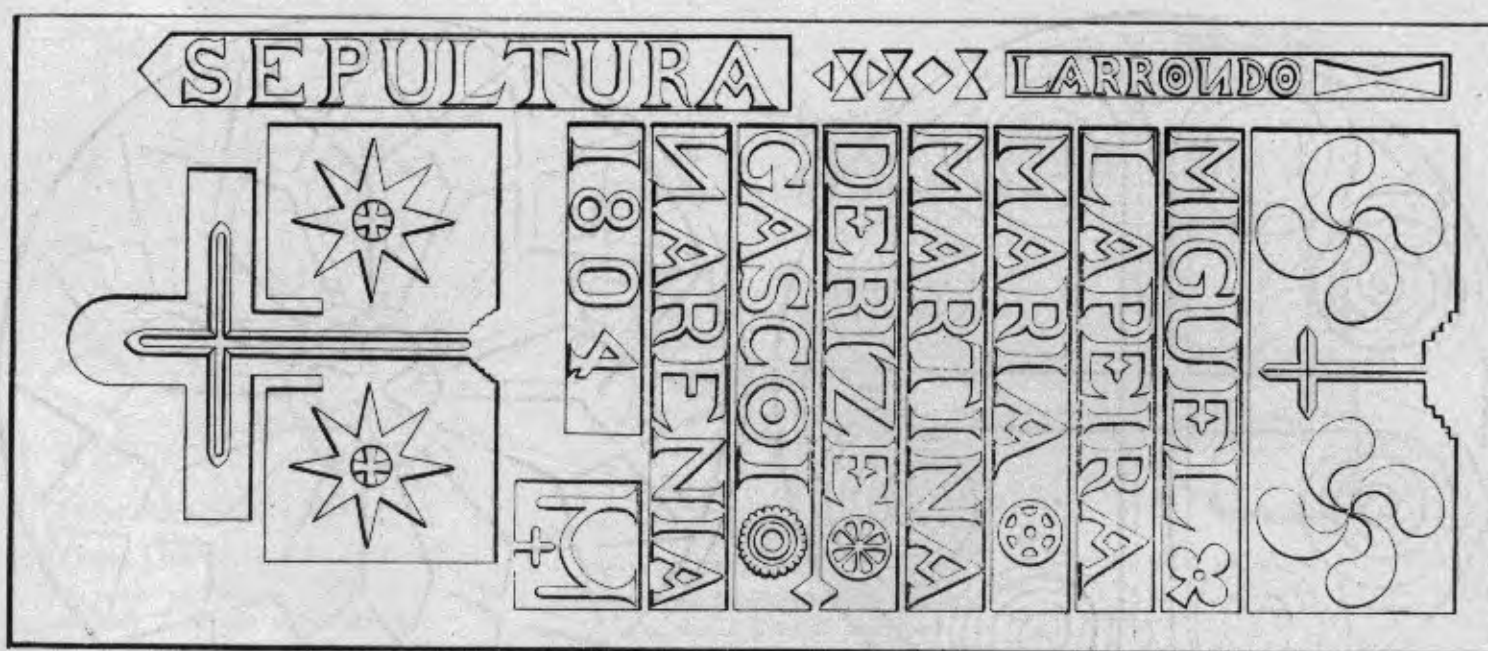 SEPULTURA
LARRONDO
MIGUEL
LAPEIRA
MARIA
MARTINA
DERIZE
GASCOI
NARENIA
1804